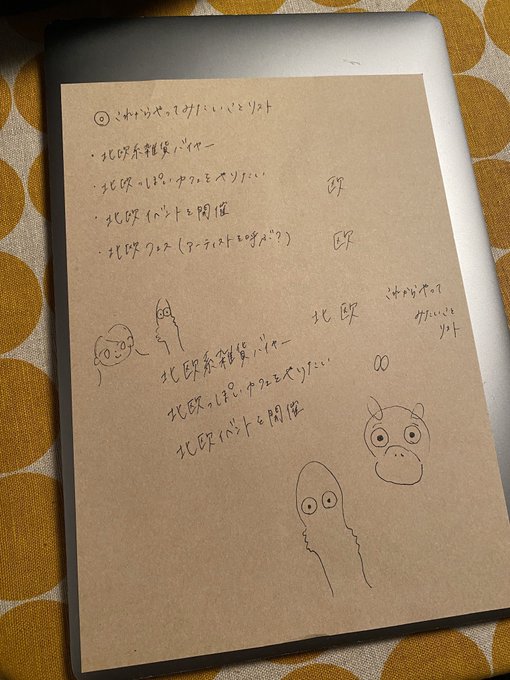 ◎ これからやってみたいことリスト
・北欧系雑貨バイヤー
・北欧っぽいカフェをやりたい
欧
・北欧イベントを開催
・北欧フェス(アーティストを呼ぶ?)
欧
北欧
これからやって
みたいこと
リスト
北欧系雑貨バイヤー
北欧っぽいカフェをやりたい
北欧イベントを開催